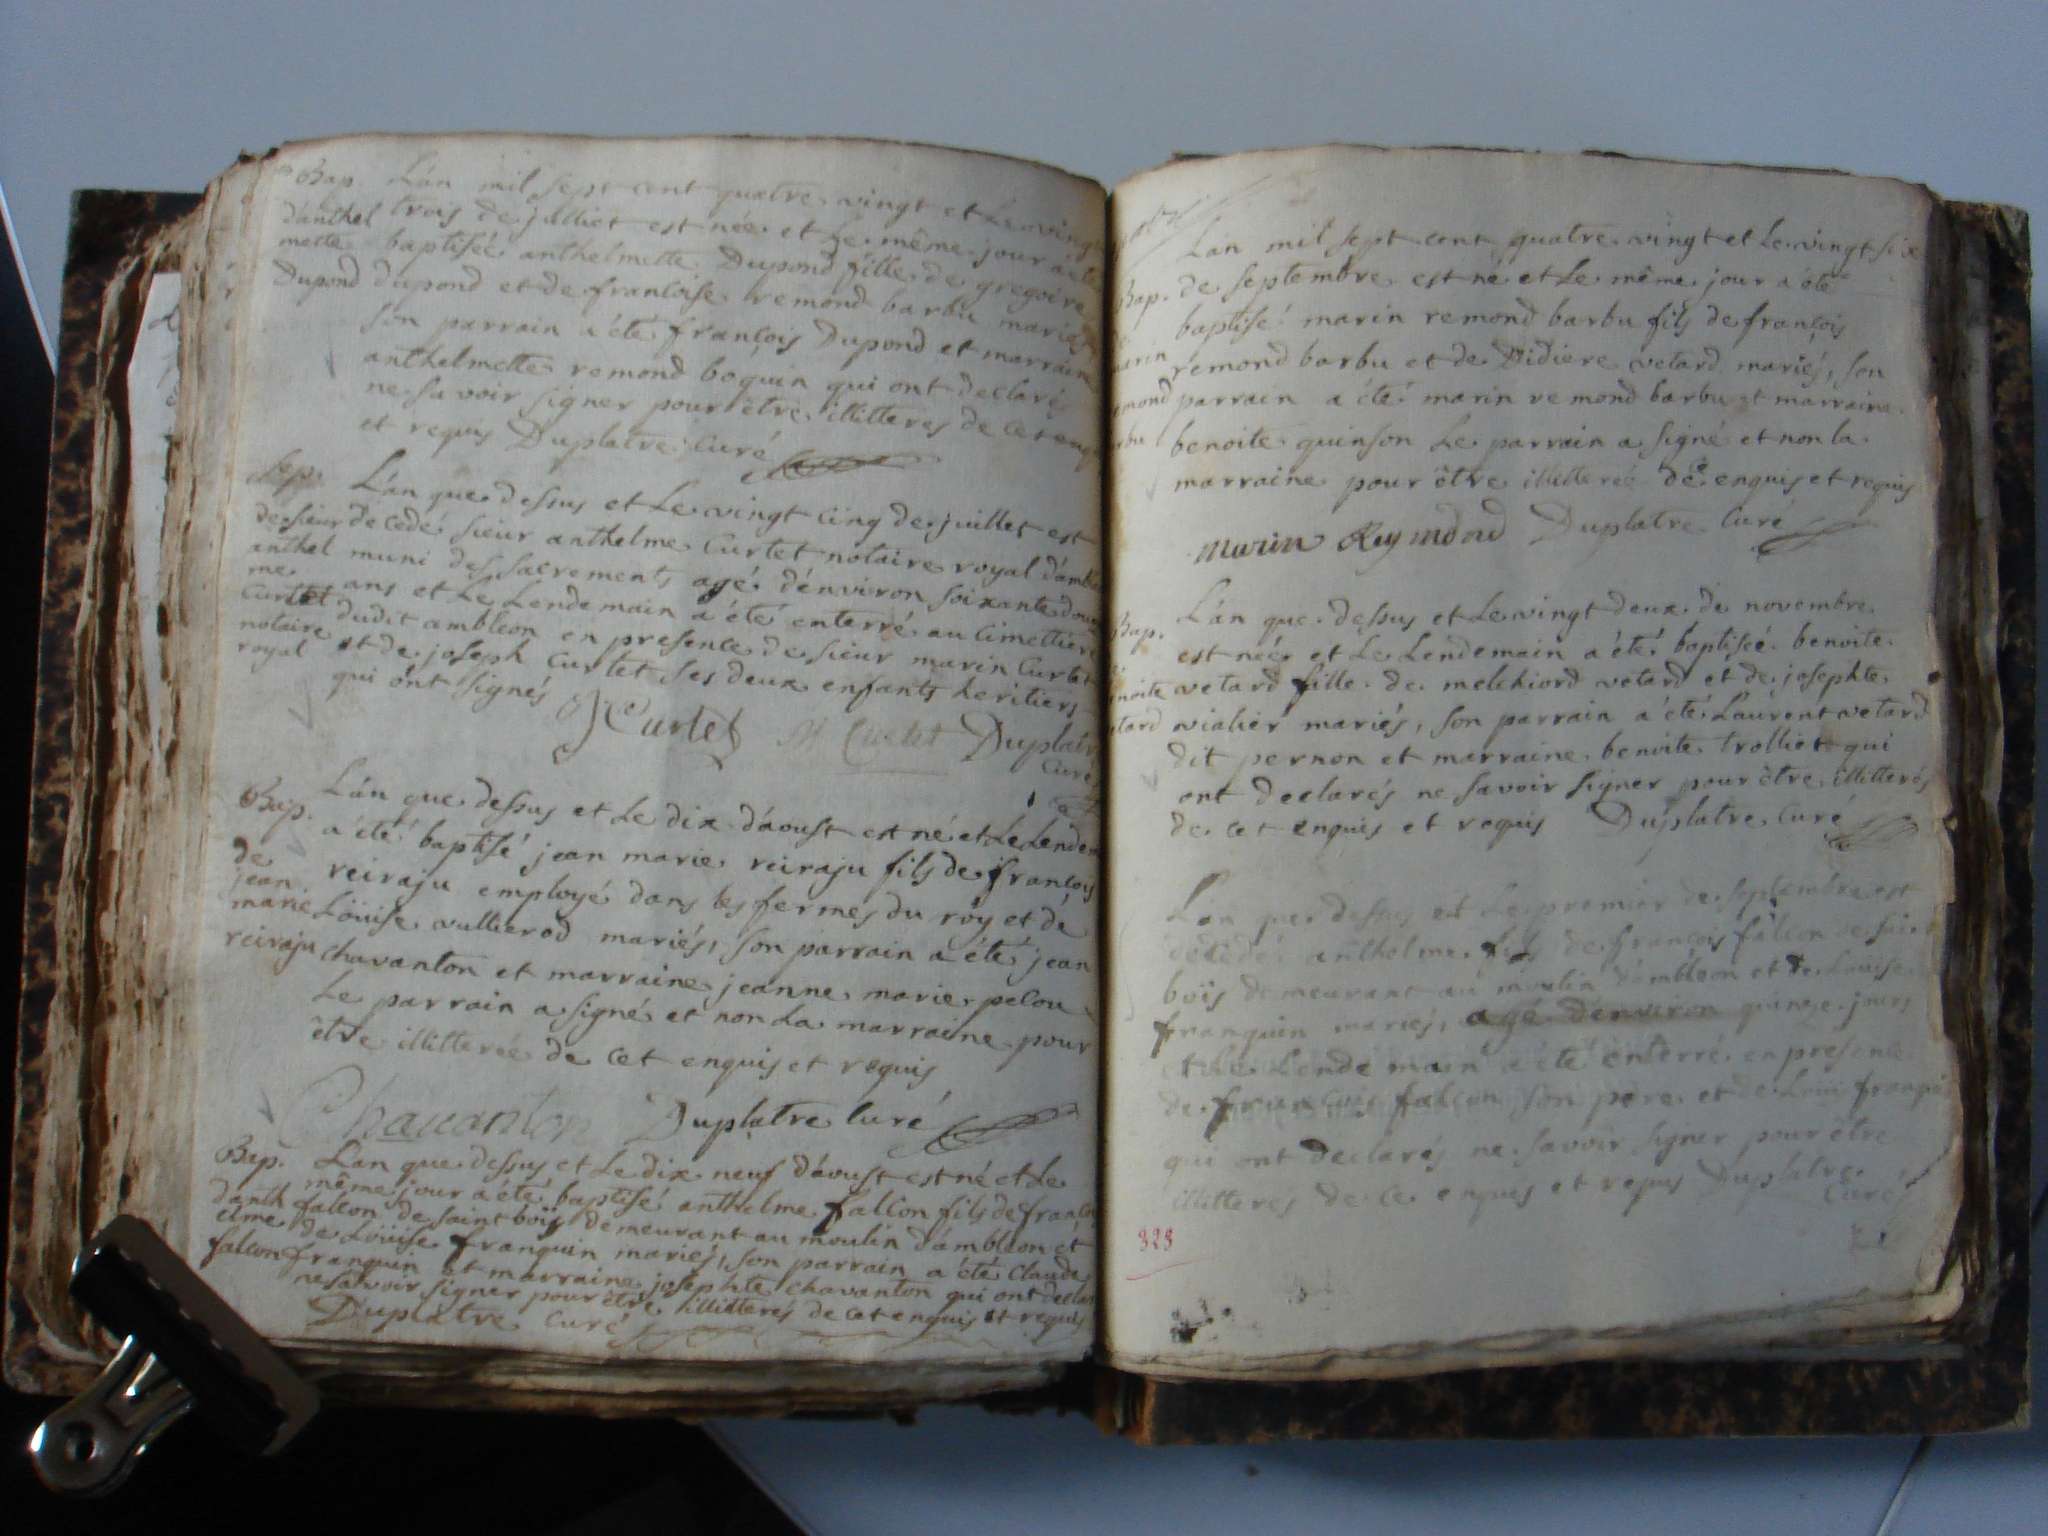 Bap. Lán mil sept cent quatre vingt et Le vingt
dánthel trois de julliet est née et Le même jour a été
mette baptisée anthelmette Dupond fille de gregoire
Dupond dupond et de francoise remond barbu mariés
son parrain a été françois Dupond et marraine
anthelmette remond boquin qui ont declarés
ne savoir signer pour être illitteres de cet enquis
et requis Duplatre Curé
Sep. Lán que dessus et Le vingt cinq de juillet est
de sieur decedé sieur anthelme Curtet notaire royal dámbleon
anthel muni des sacrements agé dénviron soixante douze
me ans et Le Lendemain a été enterré au cimettiere
Curtet dudit ambleon en presence de sieur marin Curtet
notaire et de joseph Curtet ses deux enfants heritiers
royal qui ont signés
J Curtet M Curtet Duplatre
Curé
Bap. Lán que dessus et Le dix dáoust est né et Le Lendem
a été baptisé jean marie reiraju fils de françois
de reiraju employé dans les fermes du roy et de
jean
marie Loüise vullierod mariés, son parrain a été jean
reiraju chavanton et marraine jeanne marie pelou
Le parrain a signé et non La marraine pour
être illitterée de cet enquis et requis
Chauanton Duplatre Curé
Bap. Lan que dessus et Le dix neuf dáoust est né et Le
même jour a été baptisé anthelme falcon fils de françois
danth falcon de saint boïs demeurant au moulin dámbleon et
elme de Loüise franquin mariés, son parrain a été Claude
falcon franquin et marraine josephte chavanton qui ont declar
ne savoir signer pour être illitterés de cet enquis et requis
Duplatre Curé
Lán mil sept cent quatre vingt et Le vingt six
Bap. de septembre est né et Le même jour a été
baptisé marin remond barbu fils de françois
marin remond barbu et de Didiere vetard mariés, son
emond parrain a été marin remond barbu et marraine
rbu benoite quinson Le parrain a signé et non la
marraine pour être illitterée de ce enquis et requis
Marin Reymond Duplatre Curé
Lán que dessus et Le vingt deux de novembre
Bap. est née et Le Lendemain a été baptisée benoite
noite vetard fille de melchiord vetard et de josephte
etard vialier mariés, son parrain a été Laurent vetard
dit pernon et marraine benoite trolliet qui
ont declarés ne savoir signer pour être illitterés
de cet enquis et requis Duplatre Curé
Lán que dessus et Le premier de septembre est
décédé anthelme fils de françois falcon de saint
boïs demeurant au moulin dámbleon et de Loüise
franquin mariés, agé dénviron quinze jours
et Le Lendemain a été enterré en presence
de françois falcon son pere et de Loüis franqui
qui ont declarés ne savoir signer pour être
illitteres de ce enquis et requis Duplatre
Curé
323